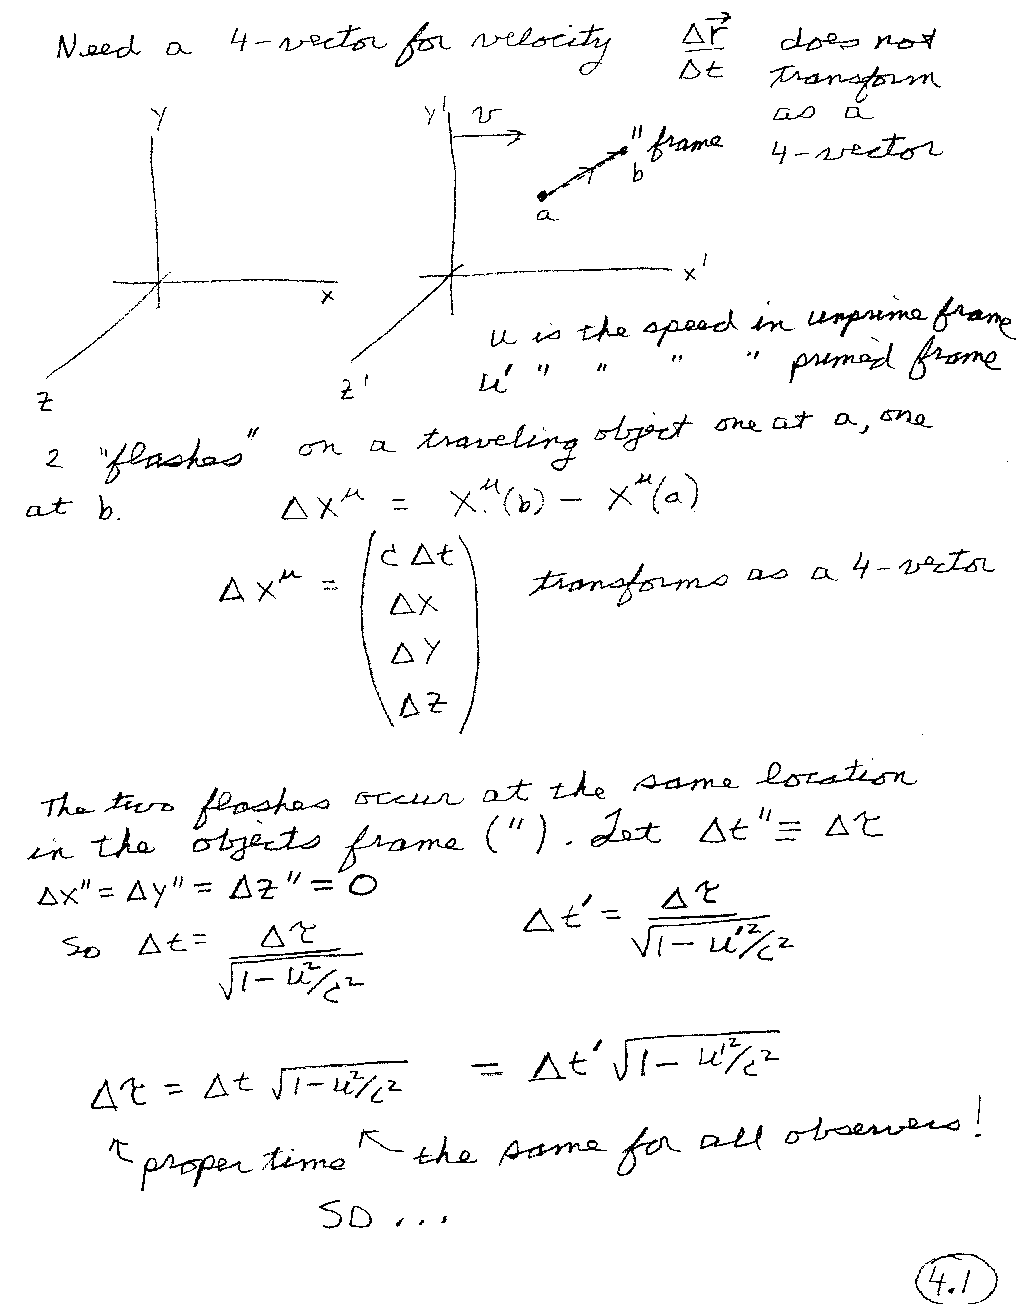 Need a 4-vector for velocity Δr⃗/Δt does not
transform
as a
4-vector
y y' v
" frame
b
a
x x'
z z'
u is the speed in unprime frame
u' " " " " primed frame
2 "flashes" on a traveling object one at a, one
at b. Δx^μ = x^μ(b) - x^μ(a)
Δx^μ = (cΔt
Δx
Δy
Δz) transforms as a 4-vector
The two flashes occur at the same location
in the objects frame ("). Let Δt" ≡ Δτ
Δx" = Δy" = Δz" = 0
So Δt = Δτ/√(1-u²/c²) Δt' = Δτ/√(1-u'²/c²)
Δτ = Δt √(1-u²/c²) = Δt' √(1-u'²/c²)
↖ proper time ↖ the same for all observers!
SO ...
4.1